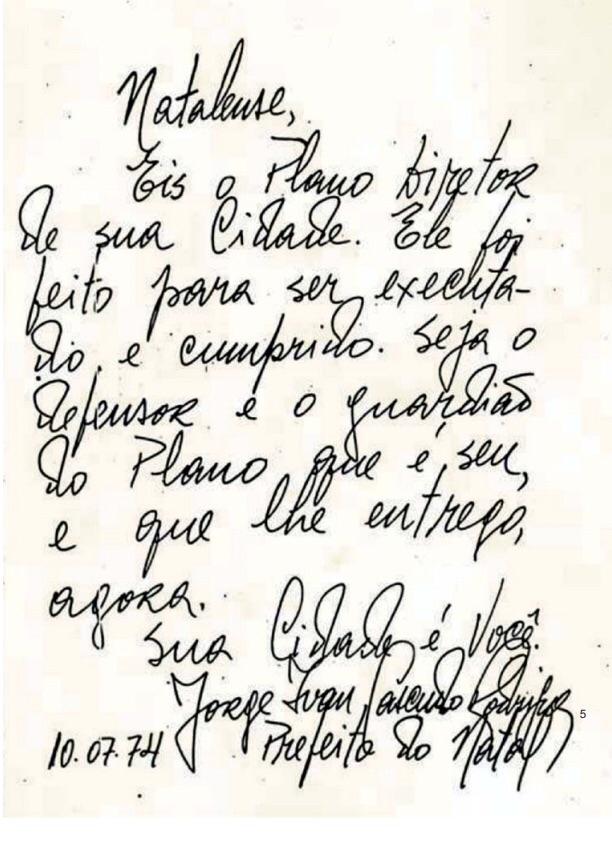 Natalense,
Eis o Plano Diretor
de sua Cidade. Ele foi
feito para ser executa-
do, e cumprido. Seja o
defensor e o guardião
do Plano que é seu,
e que lhe entrego,
agora.
Sua Cidade é Você.
Jorge Ivan Cascudo Rodrigues
5
10.07.74 Prefeito do Natal